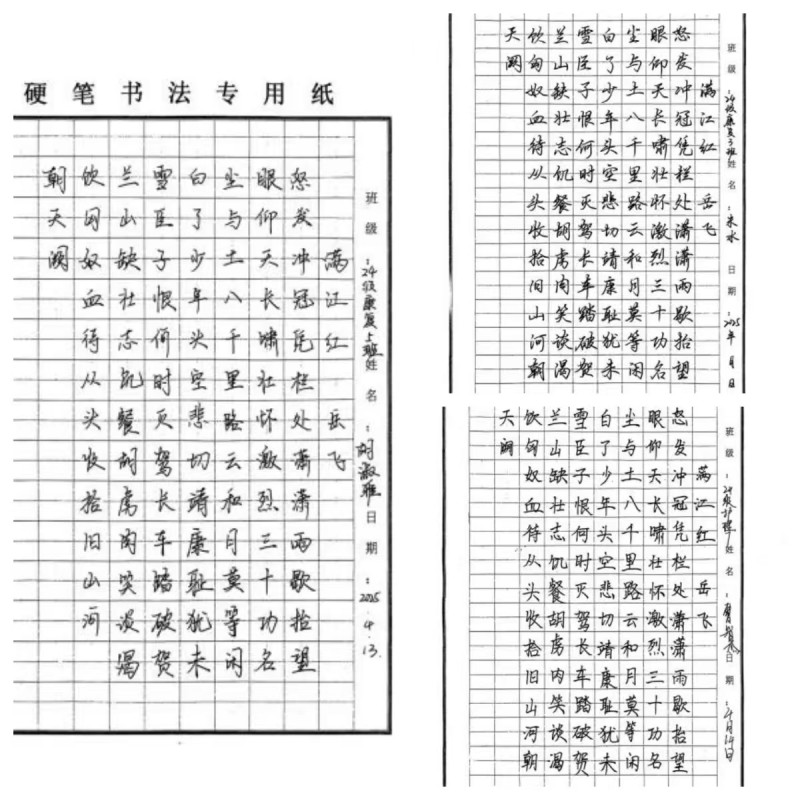 硬笔书法专用纸
班级:24级康复5班 姓名:胡淑雅 日期:2025.4.13.
满江红 岳飞
怒发冲冠凭栏处潇潇雨歇抬望
眼仰天长啸壮怀激烈三十功名
尘与土八千里路云和月莫等闲
白了少年头空悲切靖康耻犹未
雪臣子恨何时灭驾长车踏破贺
兰山缺壮志饥餐胡虏肉笑谈渴
饮匈奴血待从头收拾旧山河
朝天阙
班级:24级康复3班 姓名: 日期:2025年 月 日
满江红 岳飞
怒发冲冠凭栏处潇潇雨歇抬望
眼仰天长啸壮怀激烈三十功名
尘与土八千里路云和月莫等闲
白了少年头空悲切靖康耻犹未
雪臣子恨何时灭驾长车踏破贺
兰山缺壮志饥餐胡虏肉笑谈渴
饮匈奴血待从头收拾旧山河朝
天阙
班级:24级护理 姓名: 日期:4月14日
满江红 岳飞
怒发冲冠凭栏处潇潇雨歇抬望
眼仰天长啸壮怀激烈三十功名
尘与土八千里路云和月莫等闲
白了少年头空悲切靖康耻犹未
雪臣子恨何时灭驾长车踏破贺
兰山缺壮志饥餐胡虏肉笑谈渴
饮匈奴血待从头收拾旧山河朝
天阙